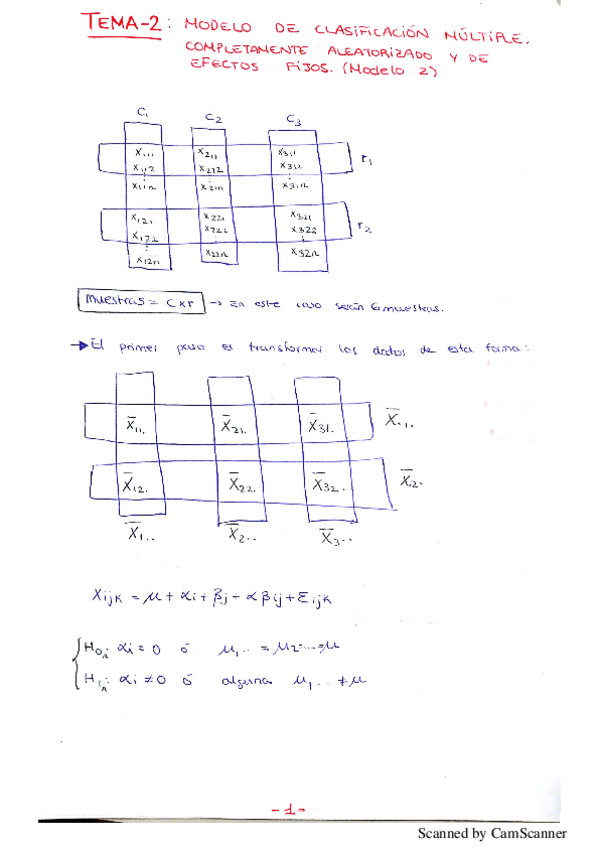 TEMA-2: MODELO DE CLASIFICACIÓN MÚLTIPLE.
COMPLETAMENTE ALEATORIZADO Y DE
EFECTOS FIJOS. (Modelo 2)
C₁ C₂ C₃
X₁₁₁ X₂₁₁ X₃₁₁ r₁
X₁₁₂ X₂₁₂ X₃₁₂
X₁₁n X₂₁n X₃₁n
X₁₂₁ X₂₂₁ X₃₂₁ r₂
X₁₂₂ X₂₂₂ X₃₂₂
X₁₂n X₂₂n X₃₂n
Muestras = C x r → En este caso serán 6 muestras.
→ El primer paso es transformar los datos de esta forma:
X̄₁₁. X̄₂₁. X̄₃₁. X̄.₁.
X̄₁₂. X̄₂₂. X̄₃₂. X̄₂.
X̄₁.. X̄₂.. X̄₃..
Xijk = μ + αi + βj - αβij + Eijk
H₀A: αi = 0 ó μ₁.. = μ₂..... = μ
H₁A: αi ≠ 0 ó alguna μ₁... ≠ μ
- 1 -
Scanned by CamScanner